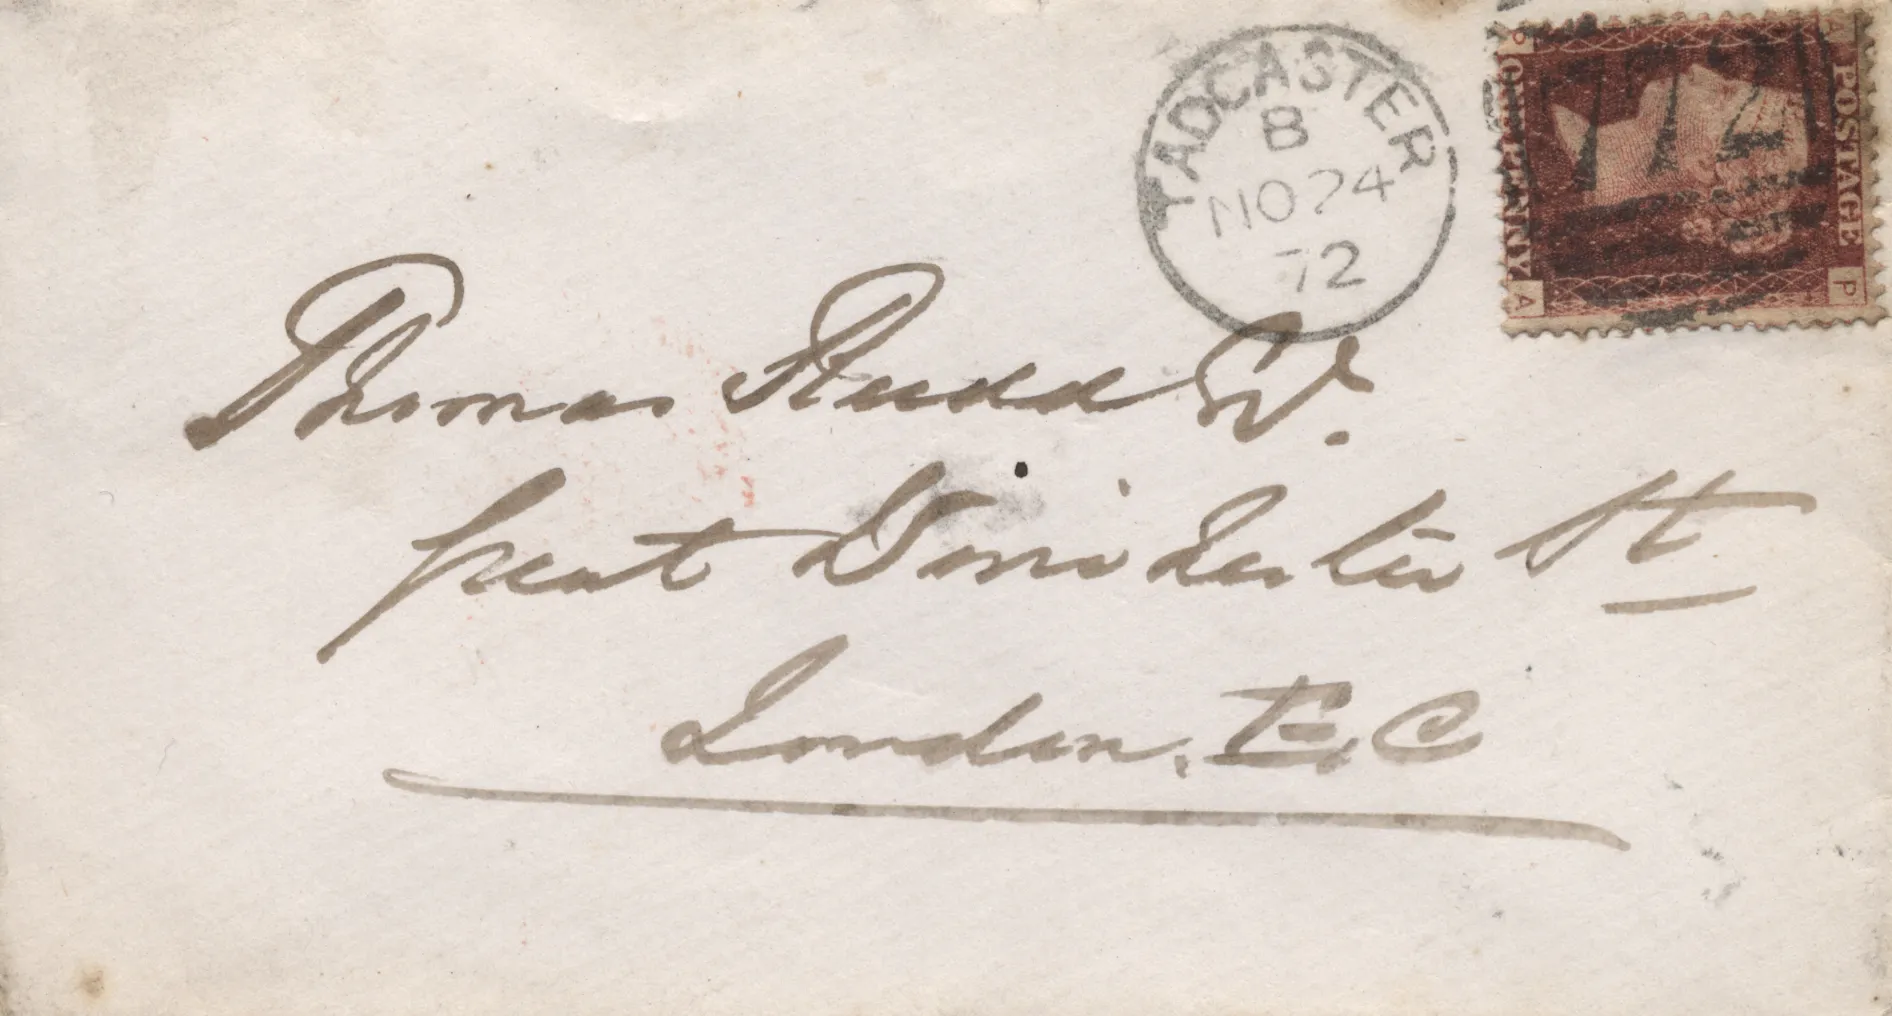 TADCASTER
B
NO 24
72
POSTAGE
ONE PENNY
P
A
Thomas Studd Esq.
Great Winchester St
London. E.C